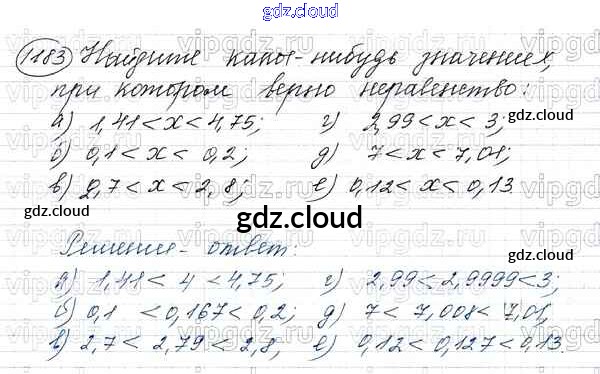 gdz.cloud
1183) Найдите какое-нибудь значение x,
при котором верно неравенство:
а) 1,41 < x < 4,75; г) 2,99 < x < 3;
gdz.cloud
б) 0,1 < x < 0,2; д) 7 < x < 7,01;
в) 2,7 < x < 2,8; е) 0,12 < x < 0,13
gdz.cloud gdz.cloud
gdz.cloud
Решение - ответ:
gdz.cloud gdz.cloud
а) 1,41 < 4 < 4,75; г) 2,99 < 2,9999 < 3;
б) 0,1 < 0,167 < 0,2; д) 7 < 7,008 < 7,01;
в) 2,7 < 2,79 < 2,8; е) 0,12 < 0,127 < 0,13.
gdz.cloud